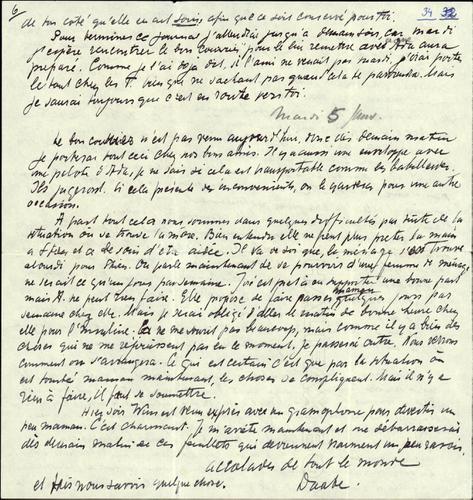 6
34 32
de ton côté qu'elle en ait soin afin que ce soit conservé pour toi.
Pour terminer ce journal j'attendrai jusqu'à demain soir, car mardi
j'espère rencontrer le bon courrier pour lui remettre avec aura
préparé. Comme je t'ai déjà dit, si l'ami ne venait pas mardi, j'irai porter
le tout chez les T. bien que ne sachant pas quand cela te parviendra. Mais
je saurai toujours que c'est en route vers toi.
Mardi 5
Le bon courrier n'est pas venu aujourd'hui, donc dès demain matin
je porterai tout ceci chez nos bons amis. Il y a aussi une enveloppe avec
une pelote je ne sais si cela est transportable comme
Ils jugeront. Si cela présente des inconvénients, on le gardera pour une autre
occasion.
A part tout cela nous sommes dans quelques difficultés par suite de la
situation où se trouve Bien entendu elle ne peut plus prêter la main
à et a de soin d'être aidée. Il va de soi que le ménage s'en trouve
alourdi pour On parle maintenant de se pourvoir d'une femme de ménage,
ne serait ce qu'un jour par semaine. J'ai est prêt à en supporter une bonne part
mais ne peut rien faire. Elle propose de faire passer maman quelques jours par
semaine chez elle. Mais je serais obligé d'aller le matin de bonne heure chez
elle pour l'insuline. Ça ne me sourit pas beaucoup, mais comme il y a bien des
choses qui ne me réjouissent pas en ce moment, je passerai outre. Nous verrons
comment on s'arrangera. Ce qui est certain c'est que par la situation où
est tombée maman maintenant, les choses se compliquent. Mais il n'y a
rien à faire, il faut se soumettre.
Hier soir est venu exprès avec un gramophone pour divertir un
peu maman. C'est charmant. Je m'arrête maintenant et me débarrasserai
dès demain matin de ces feuillets qui deviennent vraiment un peu
accolades de tout le monde
et fais nous savoir quelque chose.